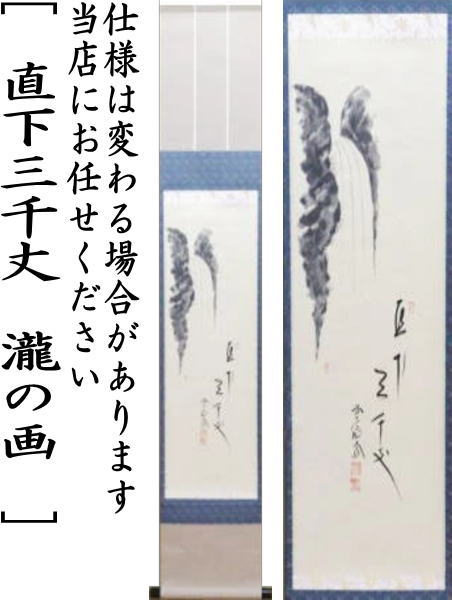 仕様は変わる場合があります
当店にお任せください
［　直下三千丈　瀧の画　］
直下
三千丈
直下
三千丈